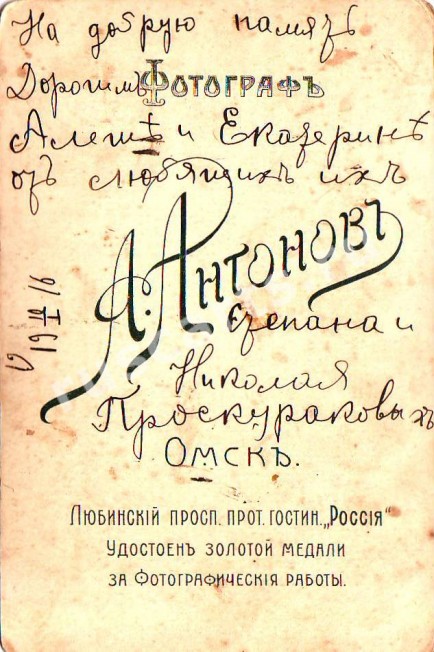 На добрую память
Дорогимъ
Фотографъ
Алешѣ и Екатеринѣ
отъ любящихъ ихъ
А. Антоновъ
Степана и
Николая
Проскураковыхъ
Омскъ.
Любинскій просп. прот. гостин. „Россія“
Удостоенъ золотой медали
за фотографическія работы.